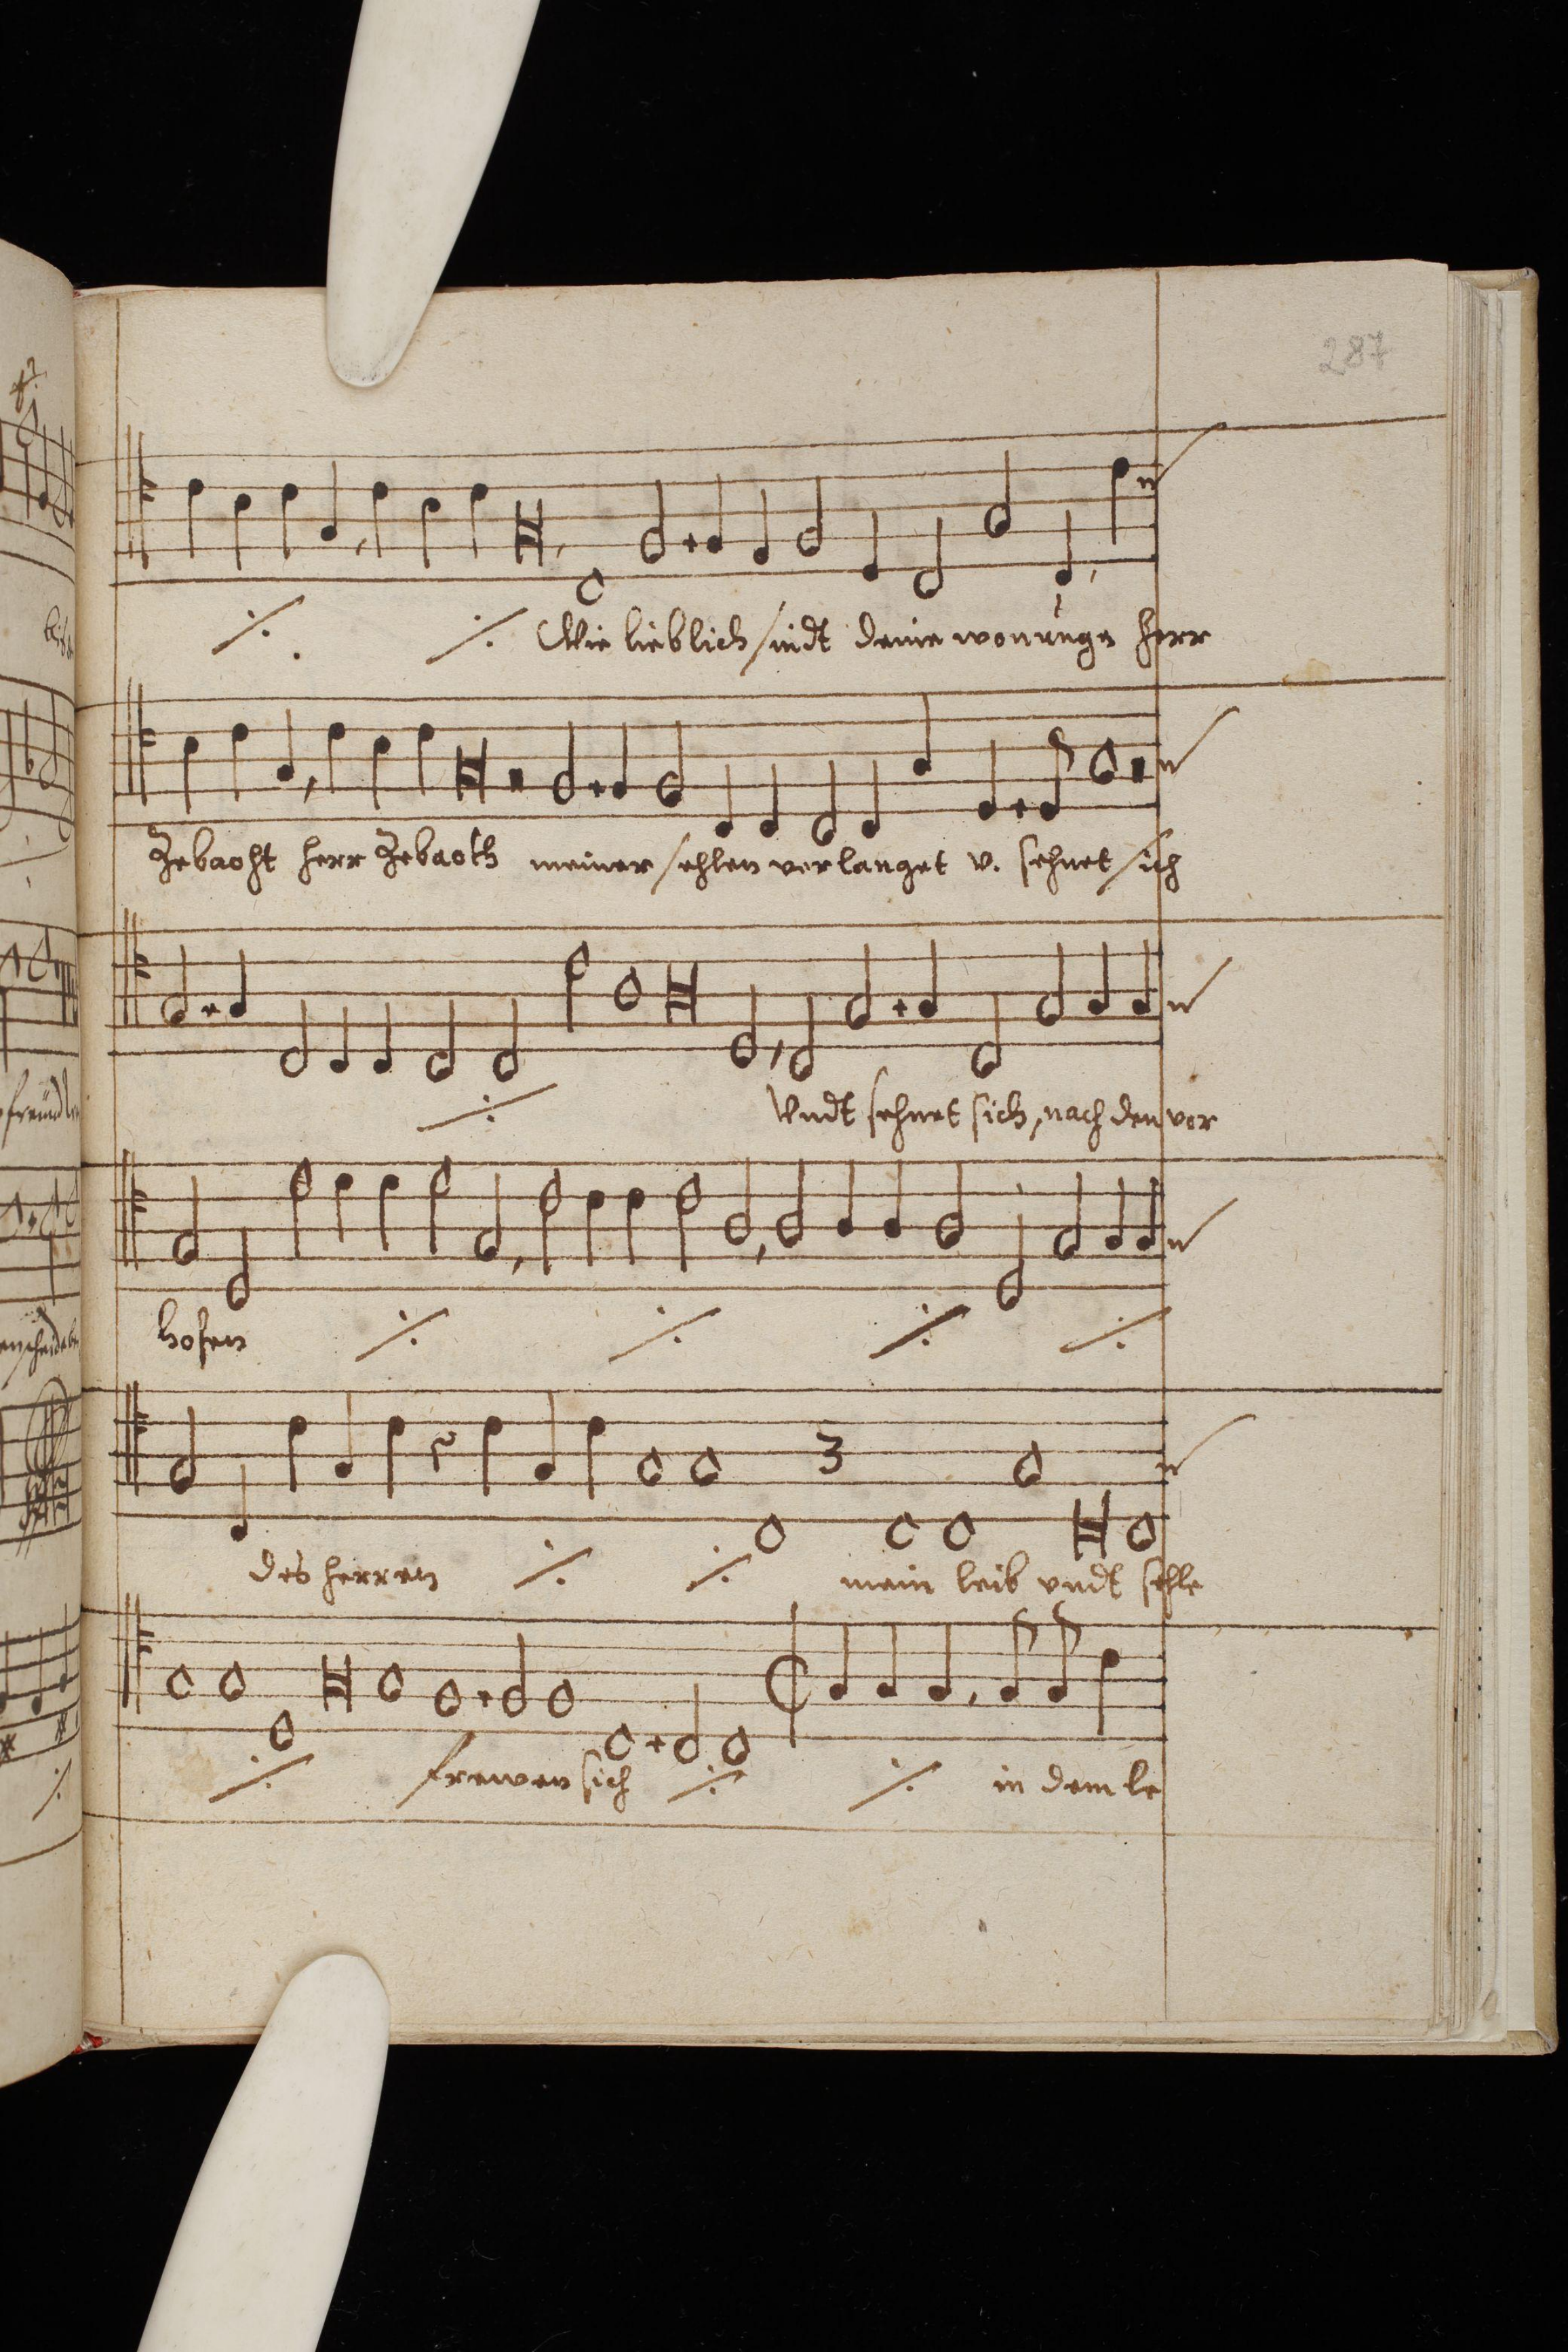 287
Wie lieblich sindt deine wonunge herr
Zebaoht herr Zebaoth meiner sehlen verlanget v. sehnet sich
Vndt sehnet sich, nach den vor
hofen
des herren mein leib vndt sehle
3
frewen sich in dem le